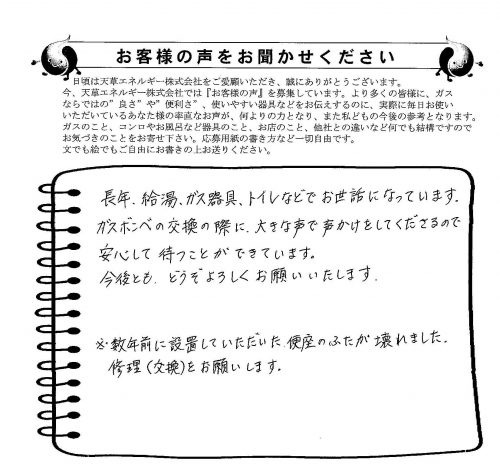 お客様の声をお聞かせください
日頃は天草エネルギー株式会社をご愛顧いただき、誠にありがとうございます。
今、天草エネルギー株式会社では『お客様の声』を募集しています。より多くの皆様に、ガス
ならではの"良さ"や"便利さ"、使いやすい器具などをお伝えするのに、実際に毎日お使い
いただいているあなた様の率直なお声が、何よりの力となり、また私どもの今後の参考となります。
ガスのこと、コンロやお風呂など器具のこと、お店のこと、他社との違いなど何でも結構ですので
お気づきのことをお寄せ下さい。応募用紙の書き方など一切自由です。
文でも絵でもご自由にお書きの上お送りください。
長年、給湯、ガス器具、トイレなどでお世話になっています。
ガスボンベの交換の際に、大きな声で声かけをしてくださるので
安心して待つことができています。
今後とも、どうぞよろしくお願いいたします。
※数年前に設置していただいた、便座のふたが壊れました。
修理(交換)をお願いします。